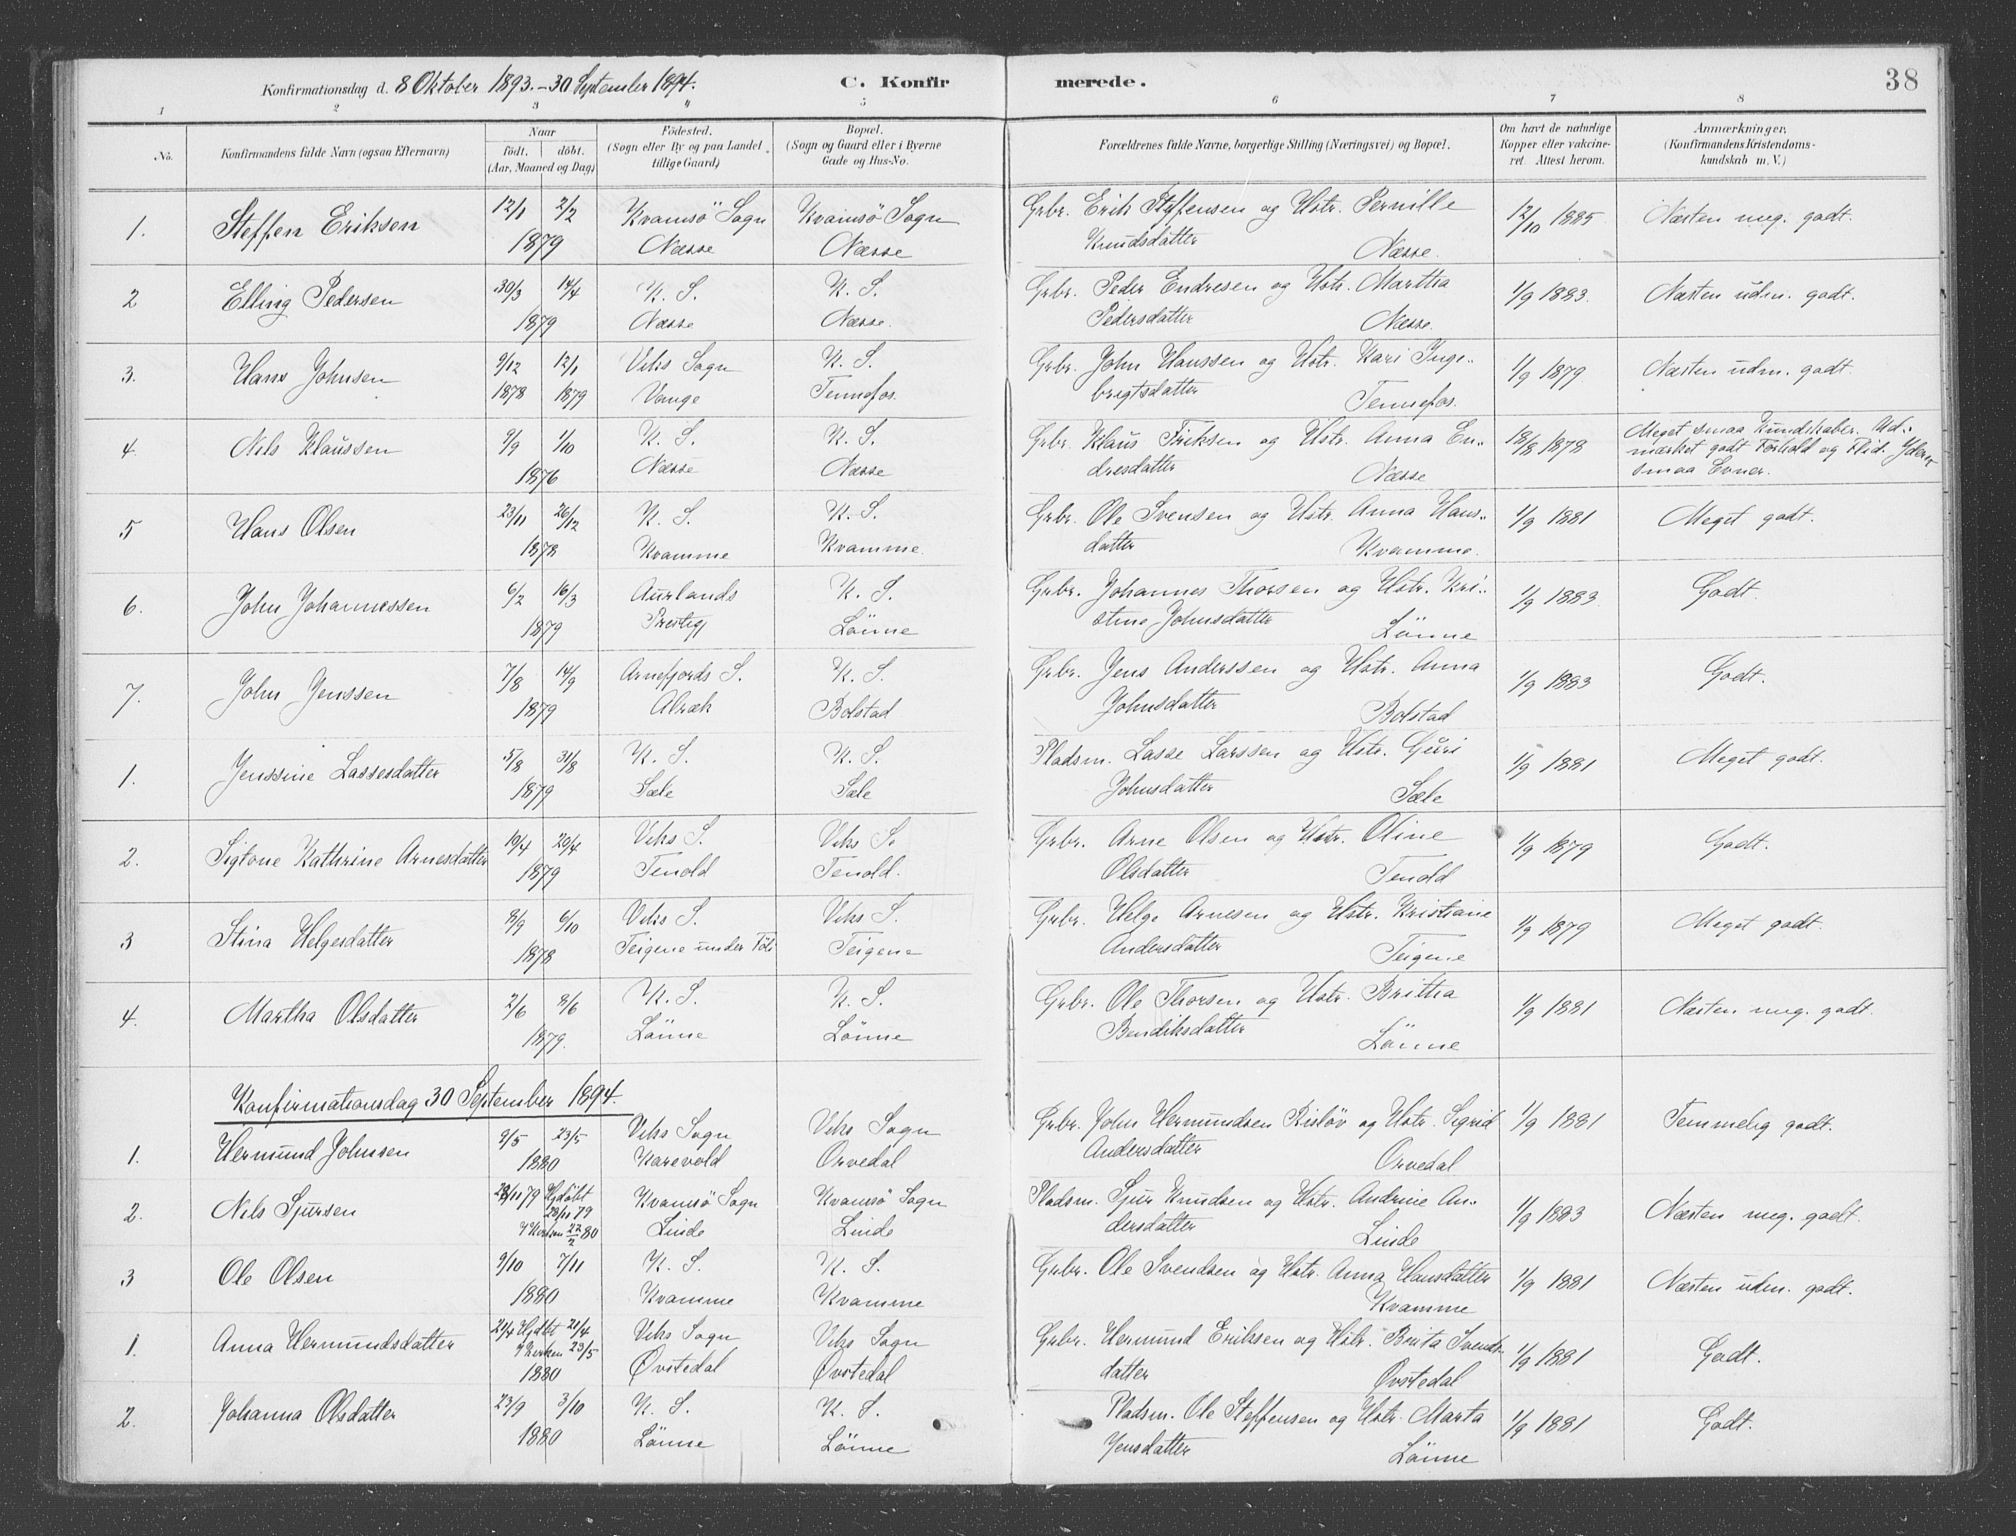 Konfirmationsdag d. 8 Oktober 1893.-30 September 1894. C. Konfir merede. 38
1 2 3 " 5 6 7 8
No. Konfirmandens fulde Navn (ogsaa Efternavn) Naar Fødested. Bopæl. Forældrenes fulde Navne, borgerlige Stilling (Næringsvei) og Bopæl. Om havt de naturlige Anmærkninger.
født. døbt. (Sogn eller By og paa Landet (Sogn og Gaard eller i Byerne Kopper eller vakcine- (Konfirmandens Kristendoms-
(Aar, Maaned og Dag) tillige Gaard) Gade og Hus-No. ret. Attest herom. kundskab m. V.)
1. Steffen Eriksen 12/1 2/2 Kvamsö Sogn Kvamsö Sogn Grbr. Erik Steffensen og Hstr. Pernille 12/10 1885 Næsten meg. godt.
1879 Næsse Næsse Knudsdatter Næsse.
2 Elling Pedersen 30/3 14/4 K. S. K. S. Grbr. Peder Endresen og Hstr. Martha 1/9 1883. Næsten udm. godt.
1879 Næsse Næsse. Pedersdatter Næsse.
3. Hans Johnsen 9/12 12/1 Viks Sogn K. S. Grbr. John Hanssen og Hstr. Kari Inge- 1/9 1879 Næsten udm. godt.
1878 1879 Vange Tennefos. brigtsdatter Tennefos.
4. Nils Klaussen 9/9 1/10 K. S. K. S. Grbr. Klaus Eriksen og Hstr. Anna En- 18/8 1878 Meget smaa Kundskaber. Ud-
mærket godt Forhold og Flid. Yderst
1876 Næsse Næsse dresdatter Næsse smaa Evner.
5 Hans Olsen 23/11 26/12 K. S. K. S. Grbr. Ole Svensen og Hstr. Anna Hans- 1/9 1881 Meget godt.
1878 Kvamme Kvamme. datter Kvamme.
6. John Johannessen 6/2 16/3 Aurlands K. S. Grbr. Johannes Thorsen og Hstr. Kri- 1/9 1883. Godt.
1879 Prestegj Lönne stine Johnsdatter Lönne
7. John Jenssen 7/8 14/9 Arnefjords S. K. S. Grbr. Jens Anderssen og Hstr. Anna 1/9 1883 Godt.
1879 Bolstad Johnsdatter Bolstad
1. Jenssine Lassesdatter 5/8 31/8 K. S. K. S. Pladsm. Lasse Larssen og Hstr. Guri 1/9 1881 Meget godt.
1879 Sæle Sæle Johnsdatter Sæle
2. Sigtone Kathrine Arnesdatter 10/4 20/4 Viks S. Viks S. Grbr. Arne Olsen og Hstr. Oline 1/9 1879 Godt.
1879 Tenold Tenold. Olsdatter Tenold
3 Stina Helgesdatter 8/9 6/10 Viks S. Viks S. Grbr. Helge Arnesen og Hstr. Kristiane 1/9 1879 Meget godt.
1878 Teigene under Teigene Andersdatter Teigene
4. Martha Olsdatter 2/6 8/6 K. S. K. S. Grbr. Ole Thorsen og Hstr. Britha 1/9 1881 Næsten meg. godt.
1879. Lönne Lönne Bendiksdatter Lönne
Konfirmationsdag 30 September 1894.
1. Hermund Johnsen 9/5 23/5 Viks Sogn Viks Sogn Grbr. John Hermundsen Risløv og Hstr. Sigrid 1/9 1881 Temmelig godt.
1880 Karevold Orvedal Andersdatter Orvedal
2. Nils Sjursen 28/11 79 Hjdöbt Kvamsö Sogn Kvamsö Sogn Pladsm. Sjur Knudsen og Hstr. Andrine An- 1/9 1883 Næsten meg. godt.
28/11 79
i Kirken 22/2 80 Linde Linde dersdatter Linde
3 Ole Olsen 9/10 7/11 K. S. K. S. Grbr. Ole Svendsen og Hstr. Anna Hansdatter 1/9 1881 Næsten udm. godt.
1880 Kvamme Kvamme Kvamme
1. Anna Hermundsdatter 21/4 Hjdbt 21/4 Viks Sogn Viks Sogn Grbr. Hermund Eriksen og Hstr. Brita Svends- 1/9 1881 Godt.
i Kirken 23/5
1880 Øvstedal Øvstedal datter Øvstedal
2. Johanna Olsdatter 23/9 3/10 K. S. K. S. Pladsm. Ole Steffensen og Hstr. Marta 1/9 1881 Godt.
1880 Lönne Lönne Jensdatter Lönne